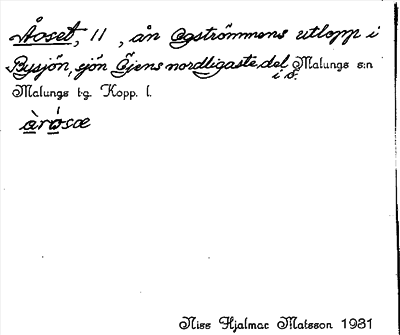 Åoset, 11, ån Ogströmmens utlopp i
Bysjön, sjön Öjens nordligaste del i S. Malungs s:n
Malungs tg. Kopp. l.
àrósæ
Nils Hjalmar Matsson 1931